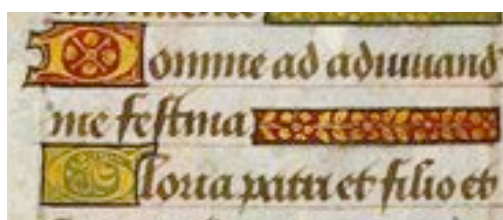 Domine ad adiuuand
me festina
Gloria patri et filio et